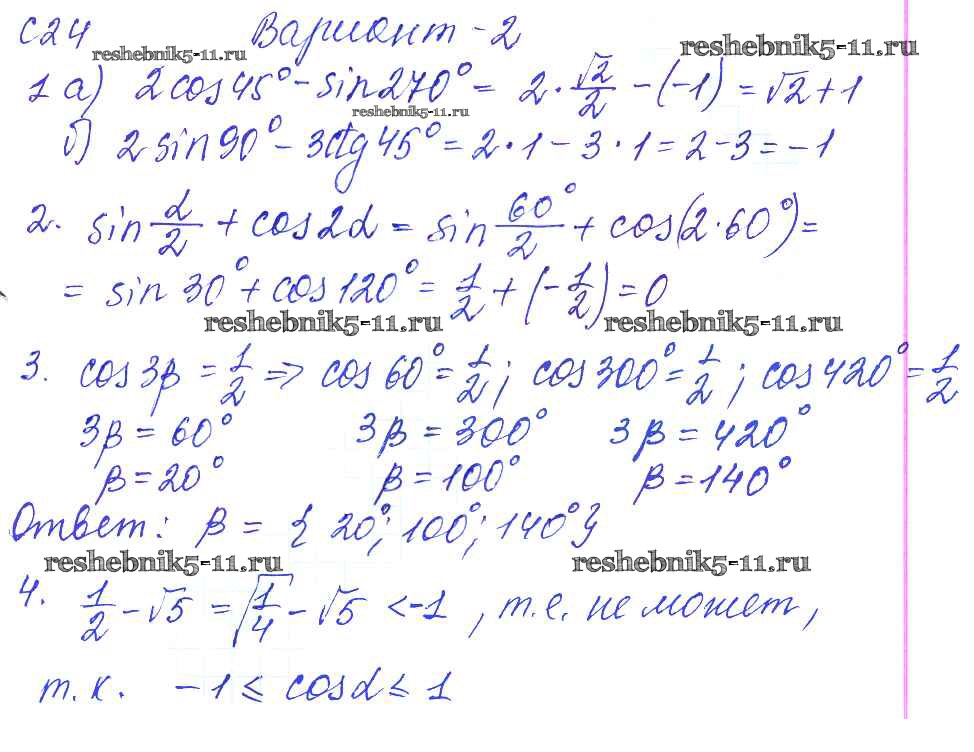 С24 Вариант - 2
reshebnik5-11.ru reshebnik5-11.ru
1 а) 2cos45° - sin270° = 2 · √2/2 - (-1) = √2 + 1
reshebnik5-11.ru
б) 2sin90° - 3ctg45° = 2 · 1 - 3 · 1 = 2 - 3 = -1
2. sin α/2 + cos2α = sin 60°/2 + cos(2 · 60°) =
= sin 30° + cos 120° = 1/2 + (-1/2) = 0
reshebnik5-11.ru reshebnik5-11.ru
3. cos3β = 1/2 => cos 60° = 1/2; cos300° = 1/2; cos420° = 1/2
3β = 60° 3β = 300° 3β = 420°
β = 20° β = 100° β = 140°
Ответ: β = {20°; 100°; 140°}
reshebnik5-11.ru reshebnik5-11.ru
4. 1/2 - √5 = √1/4 - √5 < -1, т.е. не может,
т.к. -1 ≤ cosα ≤ 1